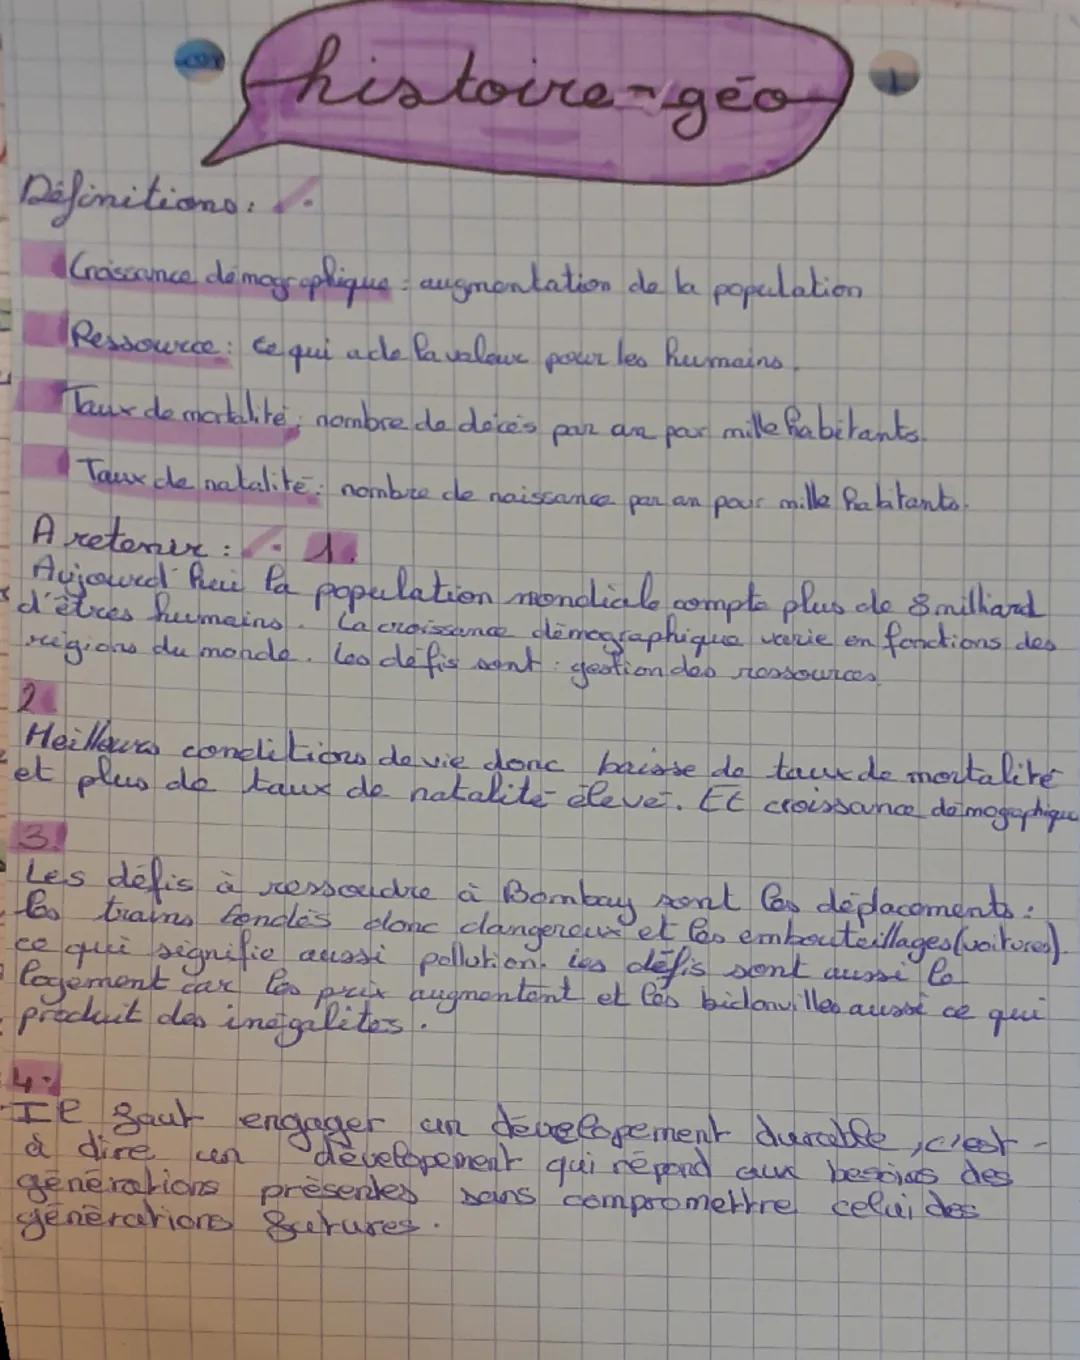 histoire-géo
Définitions :
Croissance démographique : augmentation de la population
Ressource : ce qui a de la valeur pour les humains.
Taux de mortalité : nombre de décès par an par mille habitants.
Taux de natalité : nombre de naissance par an pour mille habitants.
A retenir : 1.
Aujourd'hui la population mondiale compte plus de 8 milliard
d'êtres humains. La croissance démographique varie en fonctions des
régions du monde. Les défis sont : gestion des ressources.
2
Meilleurs conditions de vie donc baisse de taux de mortalité
et plus de taux de natalité élevé. Et croissance démographique
3.
Les défis à ressoudre à Bombay sont les déplacements :
les trains bondés donc dangereux et les embouteillages (voitures).
ce qui signifie aussi pollution. Les défis sont aussi le
logement car les prix augmentent et les bidonvilles aussi ce qui
produit des inégalités.
4.
Il faut engager un dévelopement durable, c'est-
à dire un dévelopement qui répond aux besoins des
générations présentes sans compromettre celui des
générations futures.